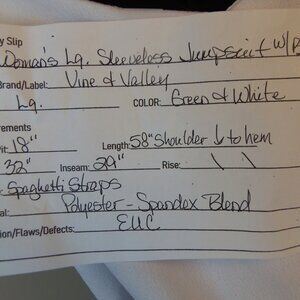 y Slip
Woman's Lg. Sleeveless Jumpsuit w/B
Brand/Label: Vine & Valley
Lg. COLOR: Green & White
rements
it: 18" Length: 58" Shoulder ↓ to hem
32" Inseam: 29" Rise: \ \
Spaghetti Straps
al: Polyester-Spandex Blend
ion/Flaws/Defects: EUC